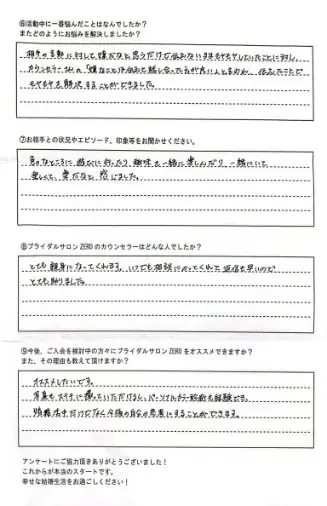 ⑥活動中に一番悩んだことはなんでしたか?
またどのようにお悩みを解決しましたか?
相手の言動に対して嫌だなと思うだけで伝えないままモヤモヤしていたことに対し、
カウンセラーさんの「嫌なことは伝えて話し合った方が良い」と言われ、伝えたことで
モヤモヤを解決することができました。
⑦お相手との状況やエピソード、印象等をお聞かせください。
色々なところに遊びに行ったり、趣味を一緒に楽しんだり、一緒にいて
楽しくて、楽だなと感じました。
⑧ブライダルサロン ZERO のカウンセラーはどんな人でしたか?
とても親身になってくれます。いつでも相談にのってくれて返信も早いので
とても助かりました。
⑨今後、ご入会を検討中の方々にブライダルサロン ZERO をオススメできますか?
また、その理由も教えて頂けますか?
オススメしたいです。
写真もステキに撮っていただけるし、パーソナルカラー診断も経験でき、
婚活中だけでなく今後の自分の参考にすることができます。
アンケートにご協力頂きありがとうございました!
これからが本当のスタートです。
幸せな結婚生活をお過ごしください!